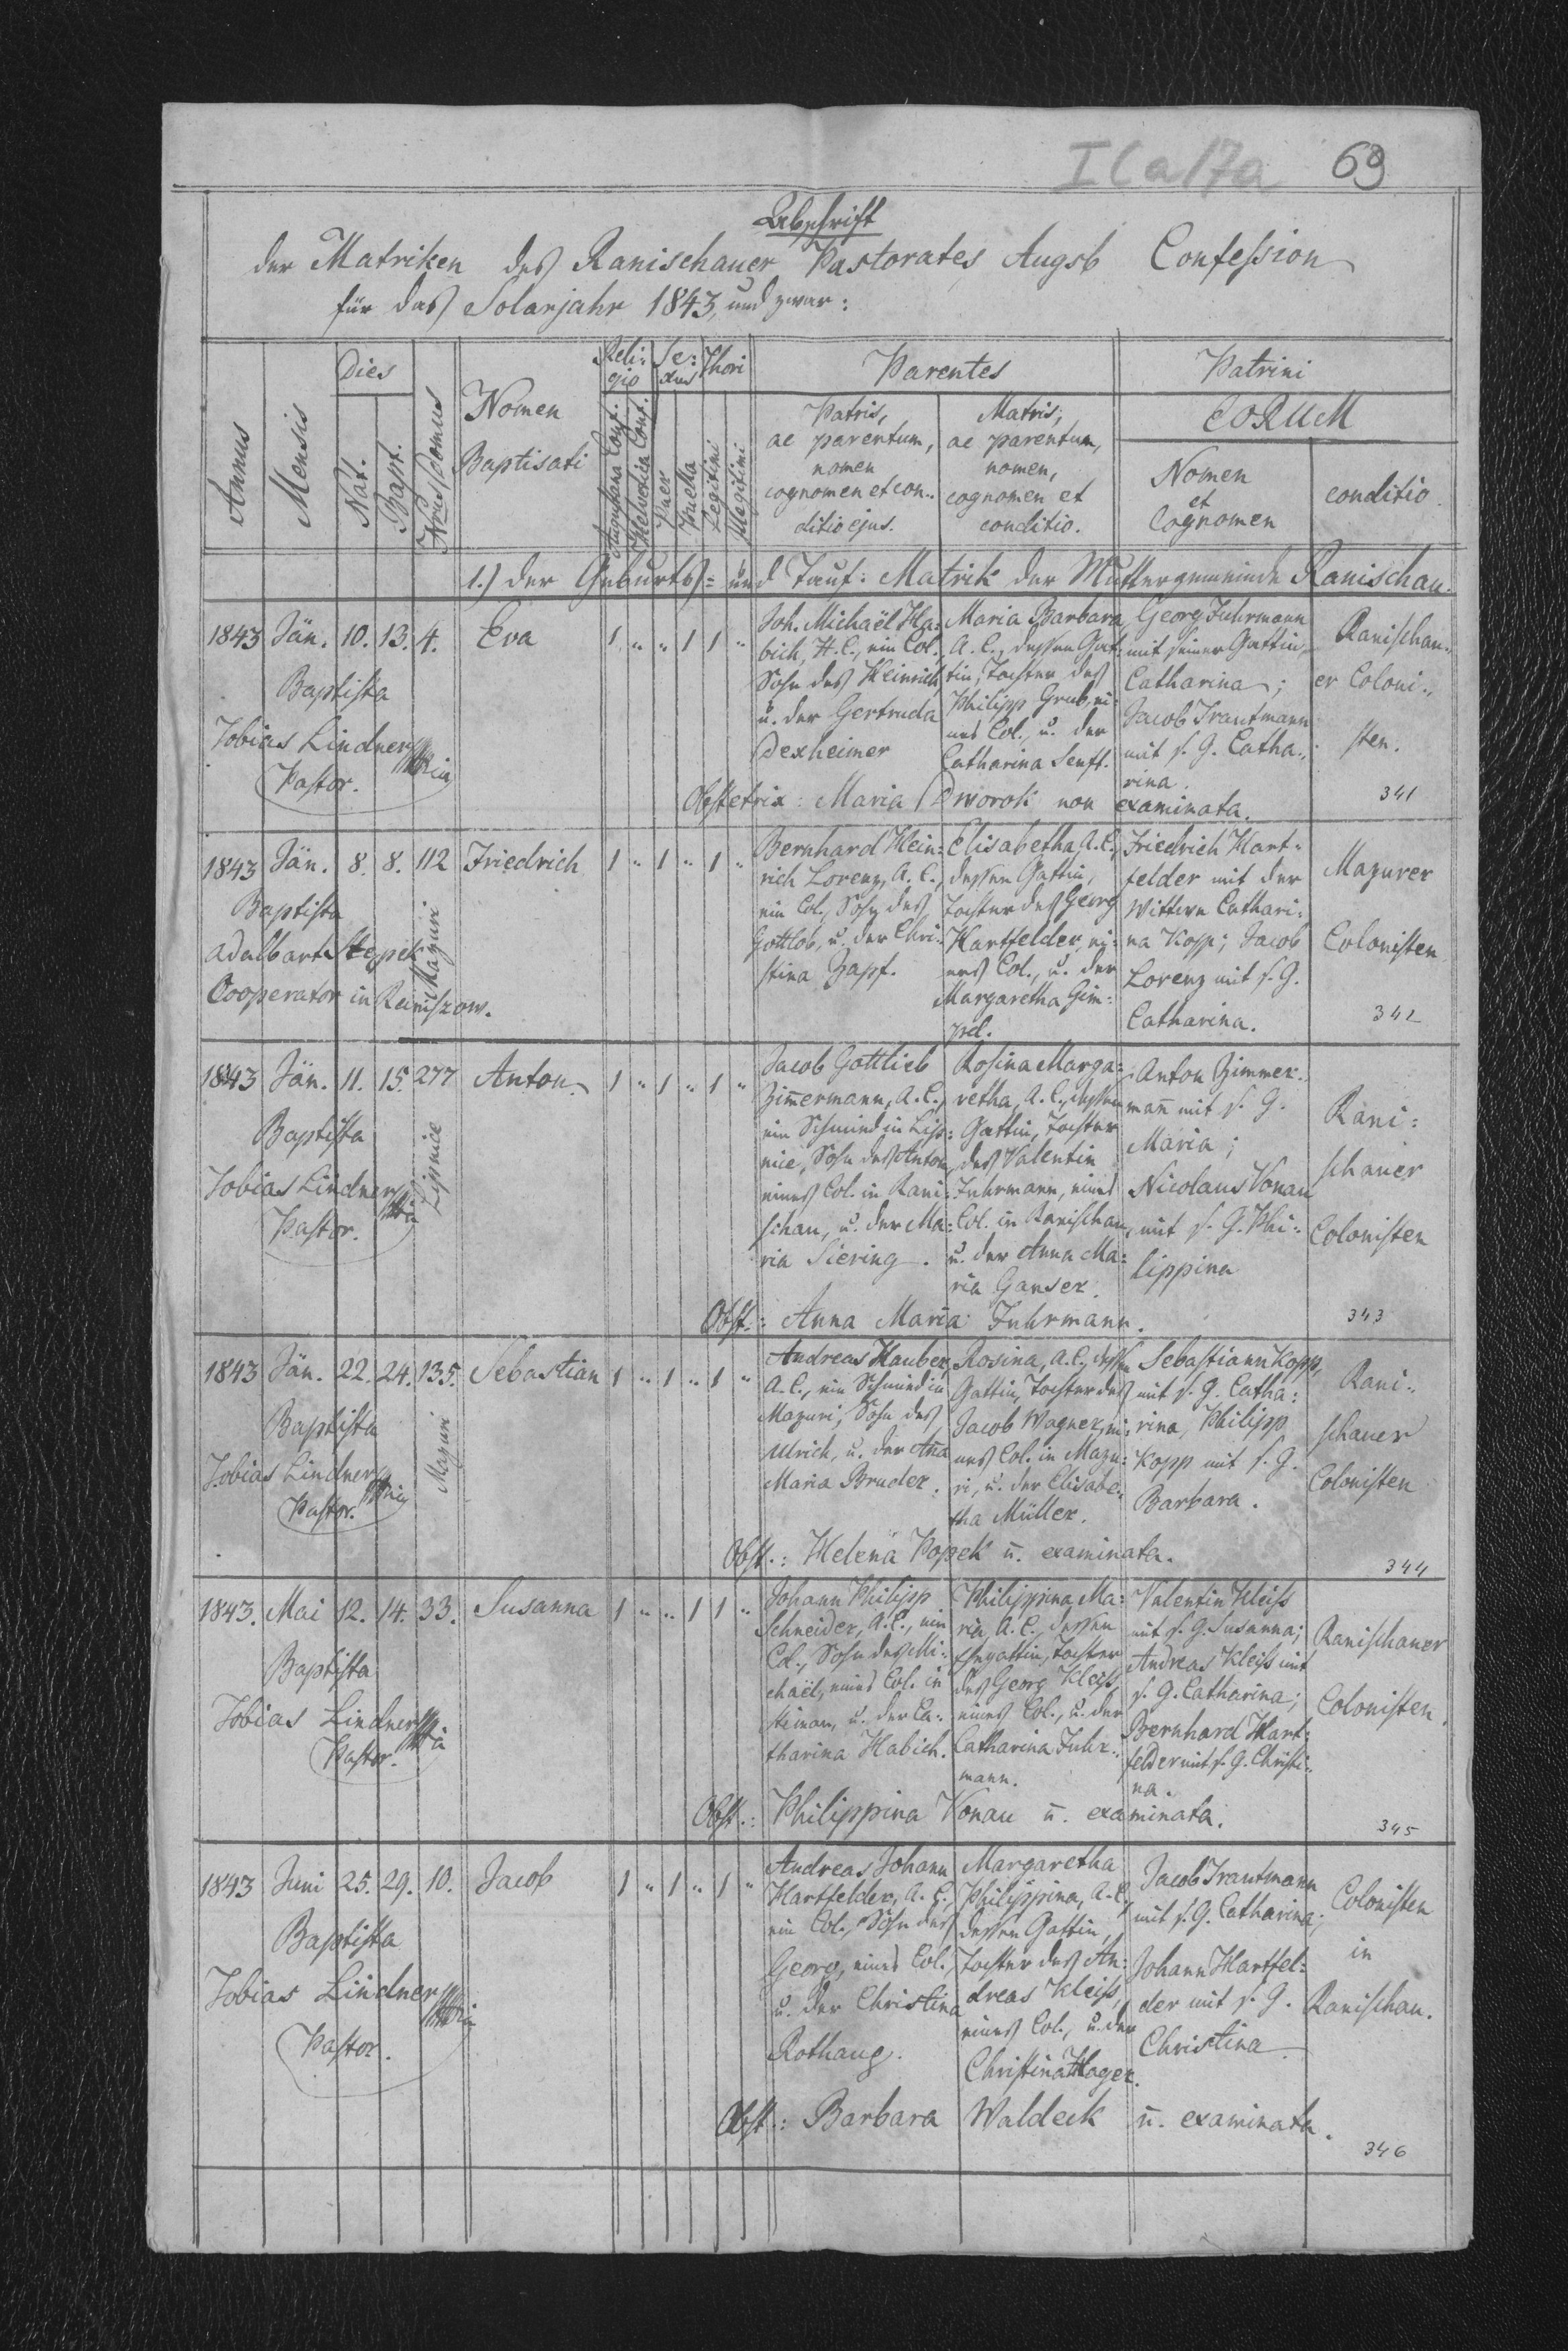 I C a 17a 69
Abschrift
der Matriken des Ranischauer Pastorates, Augsb Confession
für das Solarjahr 1843, und zwar:
Annus
Mensis
Dies
Nat.
Bapt.
Nrus Domus
Nomen
Baptisati
Reli=
gio
Augustana Conf.
Helvetica Conf.
Se=
xus
Puer
Puella
Thori
Legitimi
Illegitimi
Parentes
Patris,
ac parentum,
nomen
cognomen et con=
ditio ejus.
Matris,
ac parentum,
nomen,
cognomen et
conditio.
Patrini
EORUM
Nomen
et
Cognomen
conditio
1.) der Geburts= und Tauf: Matrik der Muttergemeinde Ranischau.
1843 Jän. 10. 13. 4. Eva 1 " " 1 1 "
Baptista
Tobias Lindner
Pastor.
Joh. Michaël Ha=
bich, H. C., ein Col.,
Sohn des Heinrich
u. der Gertruda
Dexheimer
Maria Barbara
A. C., dessen Gat=
tin, Tochter des
Philipp Grub, ei=
nes Col., u. der
Catharina Senft.
Georg Fuhrmann
mit seiner Gattin,
Catharina;
Jacob Trautmann
mit s. G. Catha=
rina.
Ranischau=
er Coloni=
sten.
Obstetrix: Maria Dworok non examinata.
341
1843 Jän. 8. 8. 112 Friedrich 1 " 1 " 1 "
Mazuri
Baptista
Adalbart Stepek
Cooperator in Raniszow.
Bernhard Hein=
rich Lorenz, A. C.,
ein Col., Sohn des
Gottlob, u. der Chri=
stina Zapf.
Elisabetha A. C.,
dessen Gattin,
Tochter des Georg
Hartfelder, ei=
nes Col., u. der
Margaretha Gim=
pel.
Friedrich Hart=
felder mit der
Wittwe Cathari=
na Kopp; Jacob
Lorenz mit s. G.
Catharina.
Mazurer
Colonisten
342
1843 Jän. 11. 15. 277 Anton 1 " 1 " 1 "
Lipnice
Baptista
Tobias Lindner
Pastor.
Jacob Gottlieb
Zimermann, A. C.,
ein Schmied in Lip=
nice, Sohn des Anton
eines Col. in Rani=
schau, u. der Ma=
ria Siering.
Rosina Marga=
retha, A. C., dessen
Gattin, Tochter
des Valentin
Fuhrmann, eines
Col. in Ranischau,
u. der Anna Ma=
ria Ganser.
Anton Zimmer=
mann mit s. G.
Maria;
Nicolaus Vonau
mit s. G. Phi=
lippina
Rani=
schauer
Colonisten
Obst.: Anna Maria Fuhrmann.
343
1843 Jän. 22. 24. 135. Sebastian 1 " 1 " 1 "
Mazuri
Baptista
Tobias Lindner
Pastor.
Andreas Hauber,
A. C., ein Schmied in
Mazuri, Sohn des
Ulrich, u. der Ana
Maria Bruder.
Rosina, A. C., dessen
Gattin, Tochter des
Jacob Wagner, ei=
nes Col. in Mazu=
ri, u. der Elisabe=
tha Müller.
Sebastian Kopp,
mit s. G. Catha=
rina, Philipp
Kopp mit s. G.
Barbara.
Rani=
schauer
Colonisten
Obst.: Helena Popek n. examinata.
344
1843. Mai 12. 14. 33. Susanna 1 " " 1 1 "
Baptista
Tobias Lindner
Pastor.
Johann Philipp
Schneider, A. C., ein
Col., Sohn des Mi=
chaël, eines Col. in
Steinau, u. der Ca=
tharina Habich.
Philippina Ma=
ria, A. C., dessen
Ehegattin, Tochter
des Georg Kleiss,
eines Col., u. der
Catharina Fuhr=
mann.
Valentin Kleiss
mit s. G. Susanna;
Andreas Kleiss mit
s. G. Catharina;
Bernhard Hart=
felder mit s. G. Christi=
na.
Ranischauer
Colonisten.
Obst.: Philippina Vonau n. examinata.
345
1843 Juni 25. 29. 10. Jacob 1 " 1 " 1 "
Baptista
Tobias Lindner
Pastor.
Andreas Johann
Hartfelder, A. C.,
ein Col., Sohn des
Georg, eines Col.,
u. der Christina
Rothaug.
Margaretha
Philippina, A. C.,
dessen Gattin,
Tochter des An=
dreas Kleiss,
eines Col., u. der
Christina Hager.
Jacob Trautmann
mit s. G. Catharina;
Johann Hartfel=
der mit s. G.
Christina
Colonisten
in
Ranischau.
Obst.: Barbara Waldeck n. examinata.
346